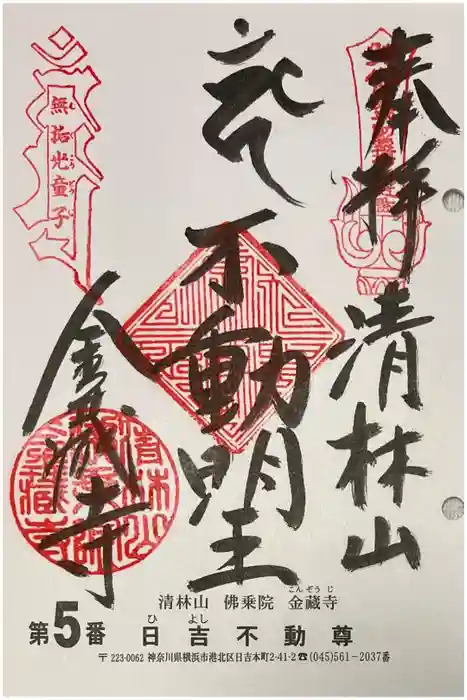 奉拝 清林山
不動明王
金蔵寺
無垢光童子
清林山 佛乗院 金藏寺
こんぞうじ
第5番 日吉不動尊
ひよし
〒223-0062 神奈川県横浜市港北区日吉本町2-41-2 ☎(045)561-2037番